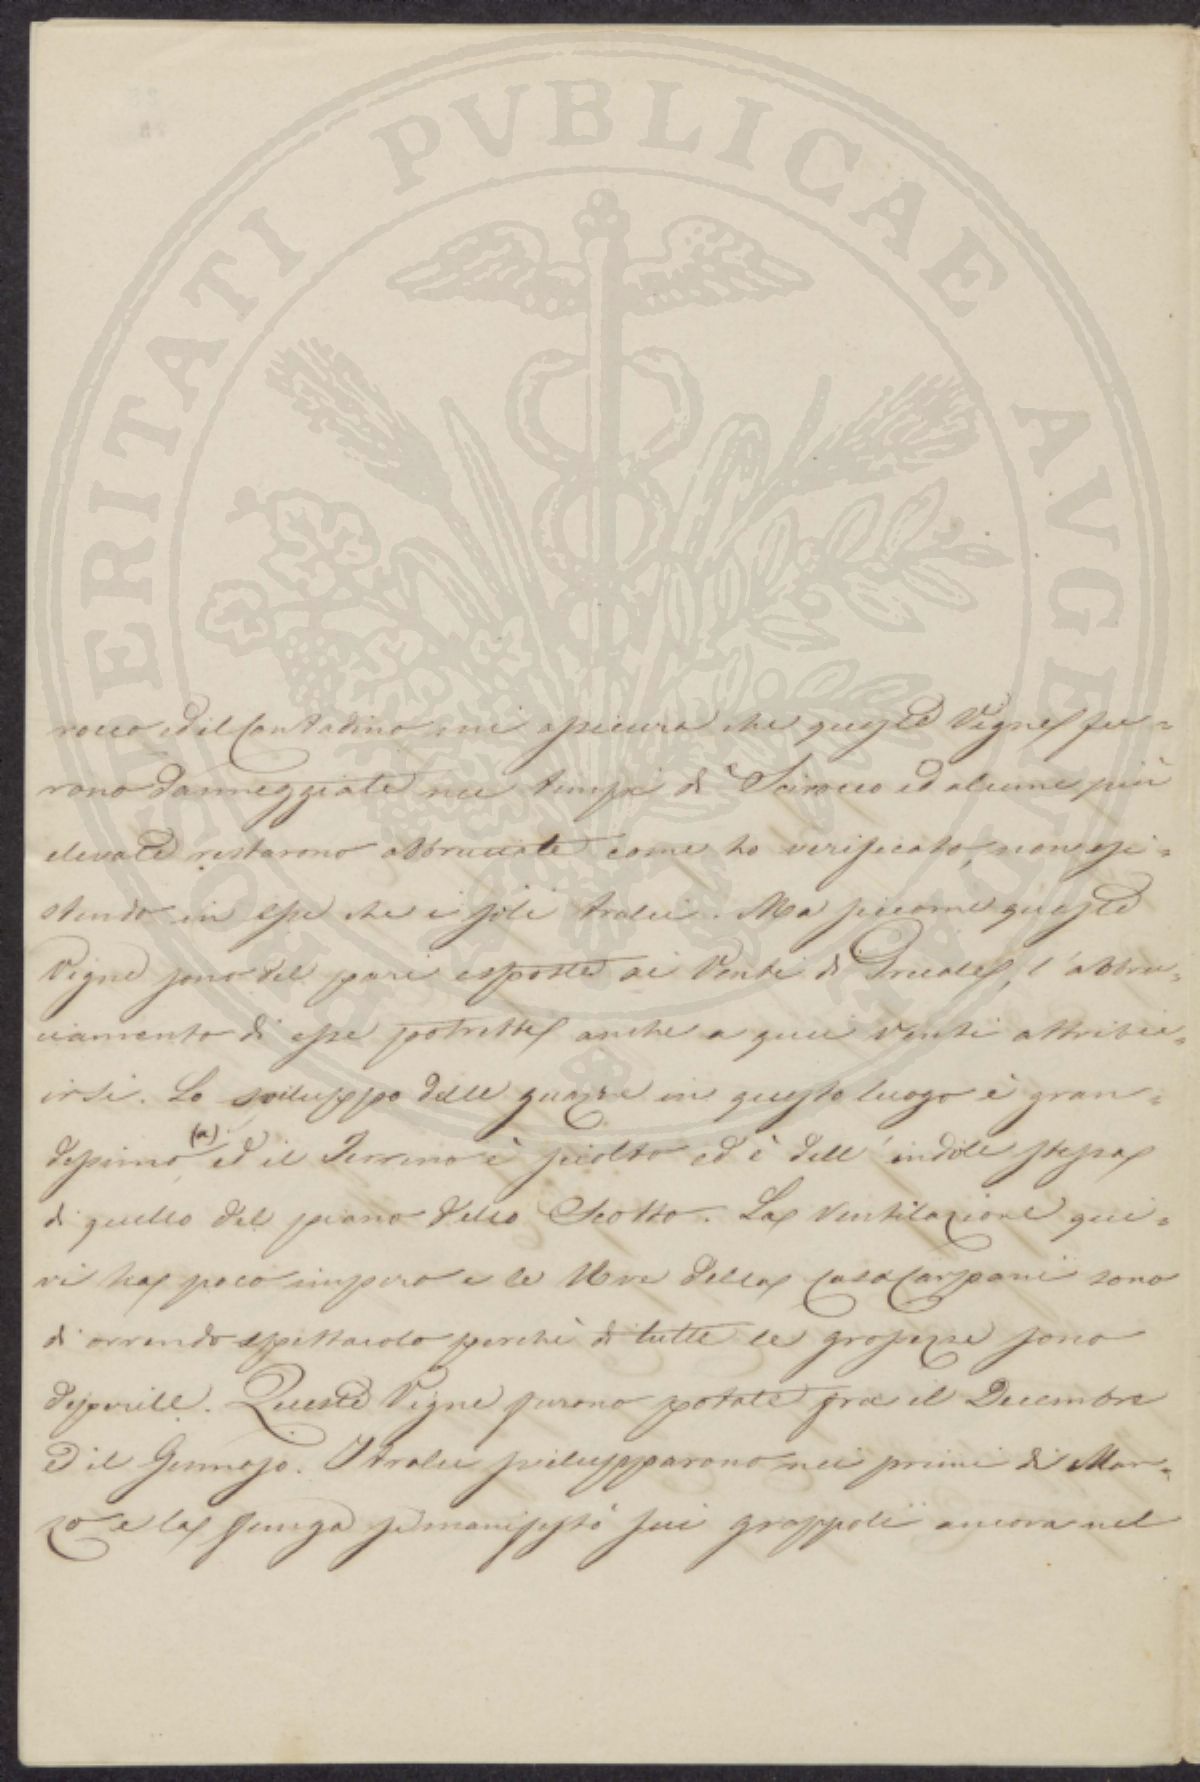 PROSPERITATI PVBLICAE AVGENDAE
rocco ed il Contadino mi assicura che queste Vigne fu=
rono danneggiate nei tempi di Scirocco ed alcune più
elevate restarono abbruciate come ho verificato, non esi=
stendo in esse che i soli tralci. Ma siccome queste
Vigne sono del pari esposte ai Venti di Grecale, l'abbru=
ciamento di esse potrebbe anche a quei venti attribu=
irsi. Lo sviluppo delle guazze in questo luogo è gran=
dissimo (a) ed il Terreno è sciolto ed è dell'indole stessa
di quello del piano dello Scotto. La Ventilazione qui=
vi ha poco impero e le Uve della Casa Carpani sono
di orrendo spettacolo perchè di tutte le grossezze sono
disperille. Queste Vigne furono potate fra il Decembre
ed il Gennajo. I tralci svilupparono nei primi di Mar=
zo e la funga si manifestò sui grappoli ancora nel